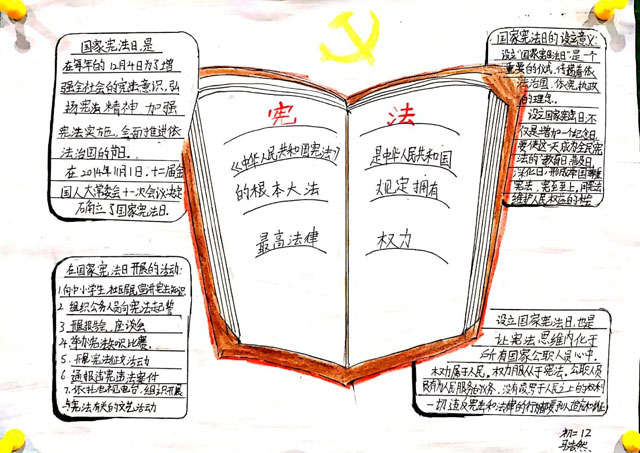 国家宪法日,是
在每年的12月4日为了增
强全社会的宪法意识,弘
扬宪法精神 加强
宪法实施,全面推进依
法治国的节日。
在2014年11月1日,十二届全
国人大常委会十一次会议决定
设立了国家宪法日.
宪 法
《中华人民共和国宪法》
的根本大法
最高法律
是中华人民共和国
规定拥有
权力
国家宪法日的设立意义:
设立"国家宪法日"是一个
重要的仪式,传递着依
法治国、依宪执政
的理念。
设立国家宪法日,不
仅是增加一个纪念日,
要使这一天成为全民宪
法的"教育日、普及日、
深化日",形成举国尊重
宪法、宪法至上,用宪法
维护人民权益的
在国家宪法日开展的活动:
1.向中小学生、社区居民宣讲宪法知识
2 组织公务人员向宪法起誓
3.开展报告会,座谈会
4.举办宪法知识比赛.
5.开展宪法征文活动
6 通报违宪违法案件
7.依托电视电台,组织开展
与宪法有关的文艺活动
设立国家宪法日,也是
让宪法思维内化于
所有国家公职人员心中。
权力属于人民,权力服从于宪法。公职人员
只有为人民服务的义务,没有凌驾于人民之上的权利
一切违反宪法和法律的行为都要予以追究和纠正
初二12